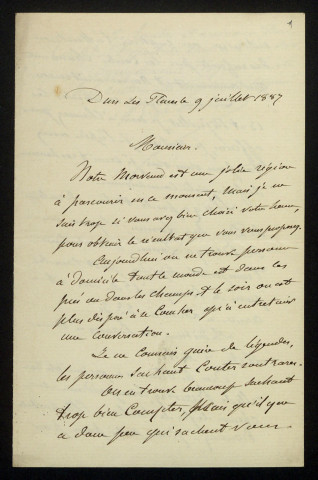 1
Dun les Places le 9 juillet 1887
Monsieur.
Notre Morvand est une jolie région
à parcourir en ce moment, mais je ne
sais trop si vous avez bien choisi votre heure,
pour obtenir le résultat que vous vous proposez.
Aujourdhui on ne trouve personne
à domicile tout le monde est dans les
prés ou dans les champs, et le soir on est
plus disposé à se coucher qu'à entretenir
une conversation.
Je ne connais guère de légendes,
les personnes sachant conter sont rares.
On en trouve beaucoup sachant
trop bien compter, mais qu'il y en
a donc peu qui sachent